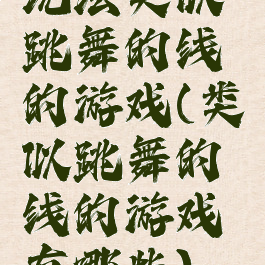 跳舞的线
的游戏(类
似跳舞的
线的游戏
有哪些)